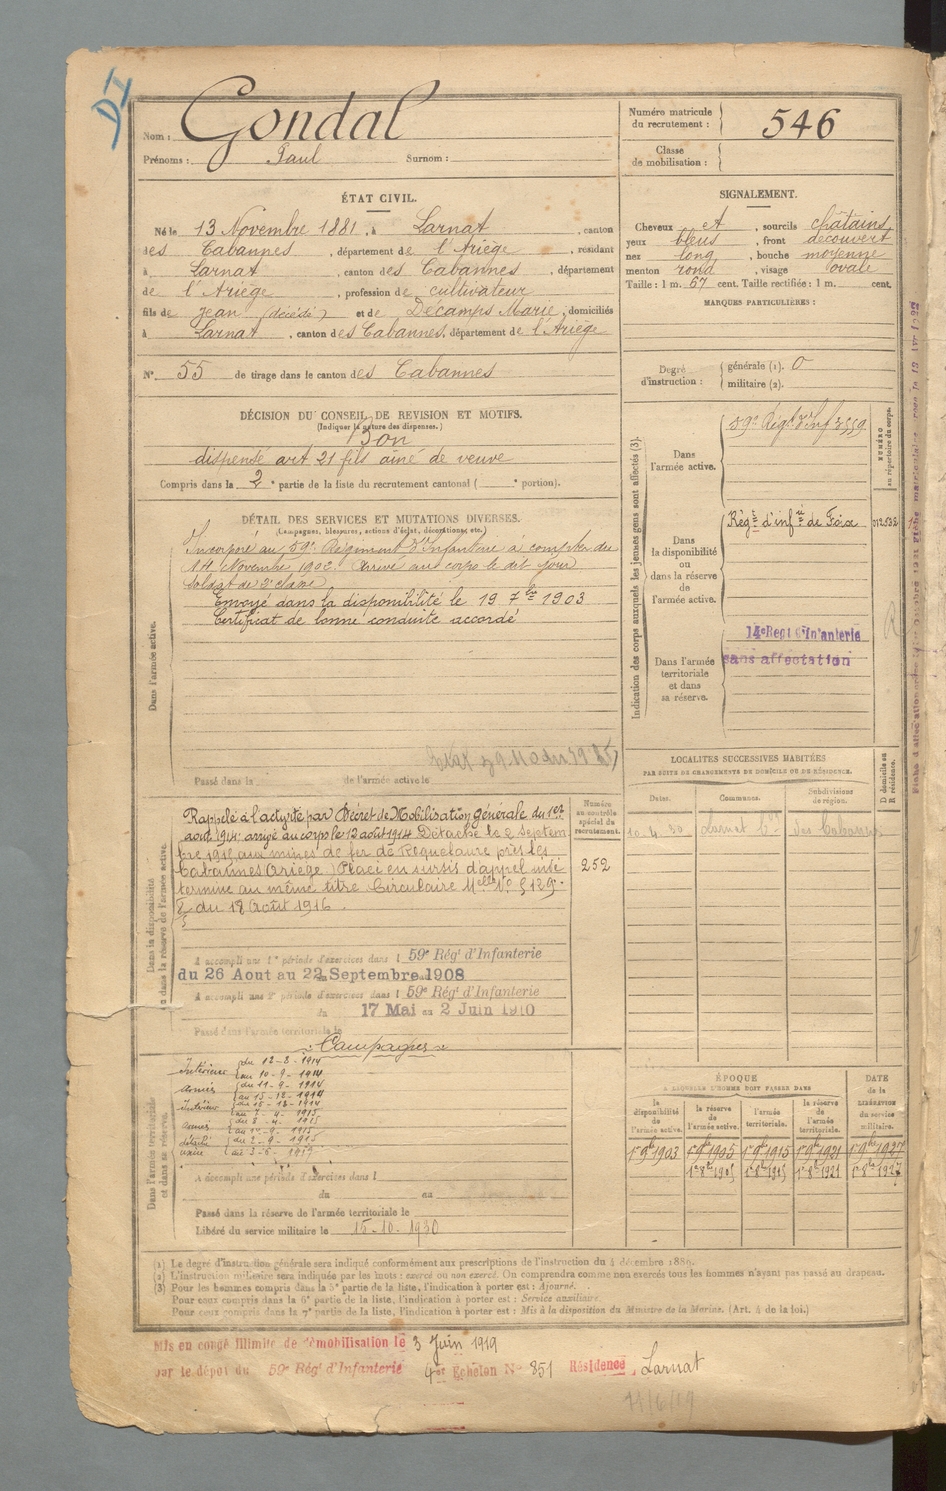 Nom : Gondal
Prénoms : Paul Surnom :
Numéro matricule
du recrutement : 546
Classe
de mobilisation :
ÉTAT CIVIL.
Né le 13 Novembre 1881, à Larnat, canton
des Cabannes, département de l'Ariège, résidant
à Larnat, canton des Cabannes, département
de l'Ariège, profession de cultivateur
fils de Jean (décédé) et de Décamps Marie, domiciliés
à Larnat, canton des Cabannes, département de l'Ariège
N° 55 de tirage dans le canton des Cabannes
SIGNALEMENT.
Cheveux et, sourcils châtains
yeux bleus, front découvert
nez long, bouche moyenne
menton rond, visage ovale
Taille : 1 m. 67 cent. Taille rectifiée : 1 m. cent.
MARQUES PARTICULIÈRES :
Degré
d'instruction :
générale (1). 0
militaire (2).
DÉCISION DU CONSEIL DE REVISION ET MOTIFS.
(Indiquer la nature des dispenses.)
Bon
dispensé art 21 fils aîné de veuve
Compris dans la 2e partie de la liste du recrutement cantonal ( e portion).
DÉTAIL DES SERVICES ET MUTATIONS DIVERSES.
(Campagnes, blessures, actions d'éclat, décorations, etc.)
Dans l'armée active.
Incorporé au 59e Régiment d'Infanterie à compter du
14 Novembre 1902. Arrivé au corps le dit jour
soldat de 2e classe
Envoyé dans la disponibilité le 19 7bre 1903
Certificat de bonne conduite accordé
Passé dans la de l'armée active le
Indication des corps auxquels les jeunes gens sont affectés (3).
NUMÉRO
au répertoire du corps.
Dans
l'armée active.
59e Régt d'Inf 3559
Dans
la disponibilité
ou
dans la réserve
de
l'armée active.
Régt d'infie de Foix
Dans l'armée
territoriale
et dans
sa réserve.
14e Regt d'Infanterie
sans affectation
LOCALITÉS SUCCESSIVES HABITÉES
PAR SUITE DE CHANGEMENTS DE DOMICILE OU DE RÉSIDENCE.
Dates. Communes. Subdivisions
de région.
D domicile ou
R résidence.
10.4.30 Larnat Con des Cabannes
Dans la disponibilité
ou dans la réserve de l'armée active.
Numéro
au contrôle
spécial du
recrutement.
252
Rappelé à l'activité par Décret de Mobilisation générale du 1er
août 1914. arrivé au corps le 12 août 1914. Détaché le 2 septem
bre 1915 aux mines de fer de Roquelaure près les
Cabannes (Ariège) Placé en sursis d'appel indé
terminé au même titre Circulaire Melle N°
du 18 Août 1916.
A accompli une 1e période d'exercices dans l 59e Régt d'Infanterie
du 26 Aout au 22 Septembre 1908
A accompli une 2e période d'exercices dans l 59e Régt d'Infanterie
du 17 Mai au 2 Juin 1910
Passé dans l'armée territoriale le
Campagnes
Dans l'armée territoriale
et dans sa réserve.
Intérieur du 12-8-1914
au 10-9-1914
Armées du 11-9-1914
au 15-12-1914
Intérieur du 16-12-1914
au 7-4-1915
Armées du 8-4-1915
au 1-9-1915
détaché du 2-9-1915
usine au 3-6-1919
A accompli une périodes d'exercices dans l
du au
Passé dans la réserve de l'armée territoriale le
Libéré du service militaire le 15-10-1930
ÉPOQUE
A LAQUELLE L'HOMME DOIT PASSER DANS
DATE
de la
LIBÉRATION
du service
militaire.
la
disponibilité
de
l'armée active.
la réserve
de
l'armée active.
l'armée
territoriale.
la réserve
de
l'armée
territoriale.
1er 9bre 1903 1er 9bre 1905 1er 9bre 1915 1er 9bre 1921 1er 9bre 1927
1er 8bre 1905 1er 8bre 1915 1er 8bre 1921 1er 8bre 1927
(1) Le degré d'instruction générale sera indiqué conformément aux prescriptions de l'instruction du 4 décembre 1889.
(2) L'instruction militaire sera indiquée par les mots : exercé ou non exercé. On comprendra comme non exercés tous les hommes n'ayant pas passé au drapeau.
(3) Pour les hommes compris dans la 5e partie de la liste, l'indication à porter est : Ajourné.
Pour ceux compris dans la 6e partie de la liste, l'indication à porter est : Service auxiliaire.
Pour ceux compris dans la 7e partie de la liste, l'indication à porter est : Mis à la disposition du Ministre de la Marine. (Art. 4 de la loi.)
Mis en congé illimité de démobilisation le 3 Juin 1919
par le dépôt du 59e Régt d'Infanterie 4e Echelon N° 851 Résidence Larnat